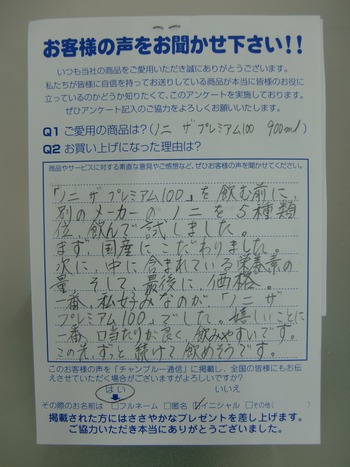 お客様の声をお聞かせ下さい!!
いつも当社の商品をご愛用いただき誠にありがとうございます。
私たちが皆様に自信を持ってお送りしている商品が本当に皆様のお役に
立っているのかどうか知りたくて、このアンケートを実施しております。
ぜひアンケート記入のご協力をよろしくお願いいたします。
Q1 ご愛用の商品は?(ノニ ザ プレミアム100 900ml)
Q2 お買い上げになった理由は?
商品やサービスに対する素直な意見やご感想など、ぜひお客様の声を聞かせてください。
「ノニ ザ プレミアム100」を飲む前に、
別のメーカーのノニを5種類
位、飲んで試しました。
まず、国産にこだわりました。
次に、中に含まれている栄養素の
量、そして、最後に、価格。
一番、私好みなのが「ノニ ザ
プレミアム100」でした。嬉しいことに
一番、口当たりが良く、飲みやすいです。
この先、ずっと続けて飲めそうです。
このお客様の声を「チャンプルー通信」に掲載し、全国の皆様にもお伝
えさせていただく場合がございますがよろしいですか?
はい いいえ
その際のお名前は □フルネーム □匿名 ☑イニシャル □その他( )
掲載された方にはささやかなプレゼントを差し上げます。
ご協力いただき本当にありがとうございました。